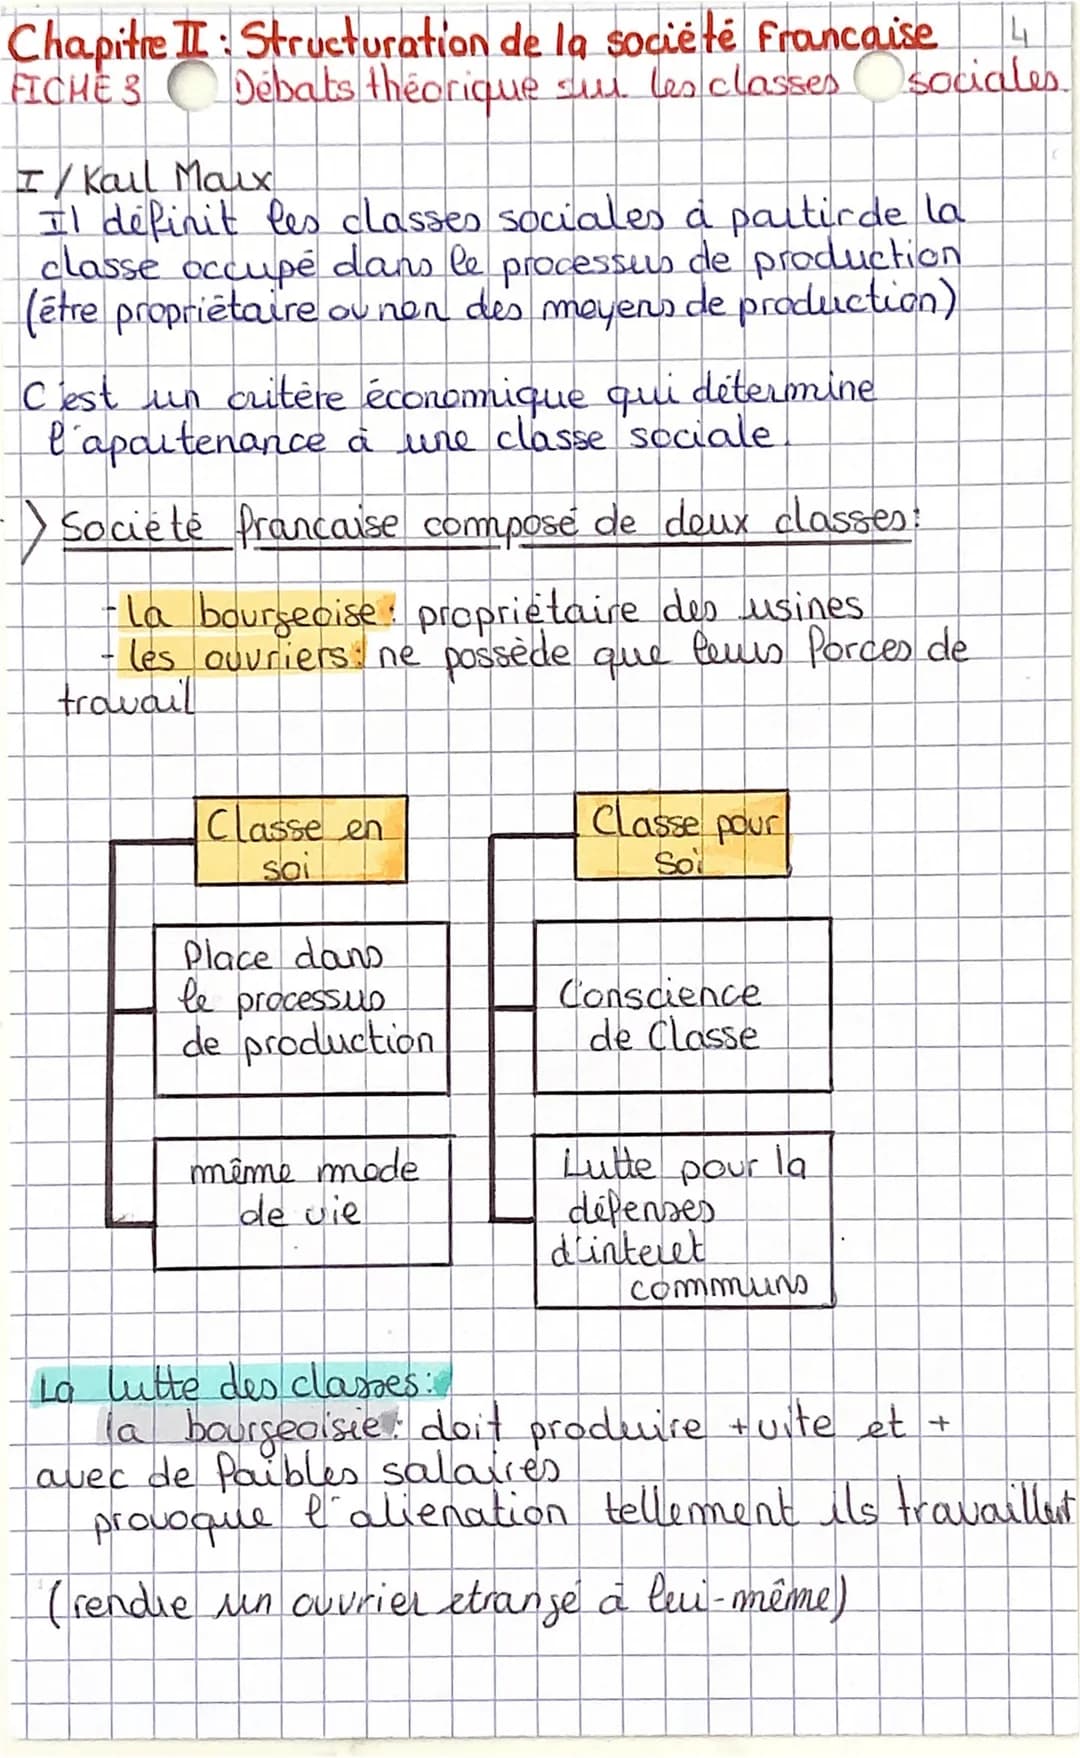 Chapitre II : Structuration de la société francaise 4
FICHE 3 Débats théorique sur les classes sociales.
I / Karl Marx
Il définit les classes sociales à partir de la
classe occupé dans le processus de production
(être propriétaire ou non des moyens de production)
C'est un critère économique qui détermine
l'apartenance à une classe sociale.
> Société française composé de deux classes:
- la bourgeoise : propriétaire des usines
- les ouvriers : ne possède que leurs forces de
travail
Classe en
soi
Place dans
le processus
de production
même mode
de vie
Classe pour
Soi
Conscience
de Classe
Lutte pour la
défenses
d'interet
communs
La lutte des classes :
la bourgeoisie : doit produire + vite et +
avec de faibles salaires
provoque l'alienation tellement ils travaillent
(rendre un ouvrier etrangé à lui-même)